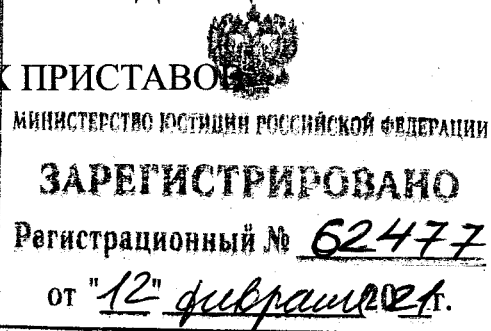 Х ПРИСТАВОВ
МИНИСТЕРСТВО ЮСТИЦИИ РОССИЙСКОЙ ФЕДЕРАЦИИ
ЗАРЕГИСТРИРОВАНО
Регистрационный № 62477
от "12" февраля 2021г.